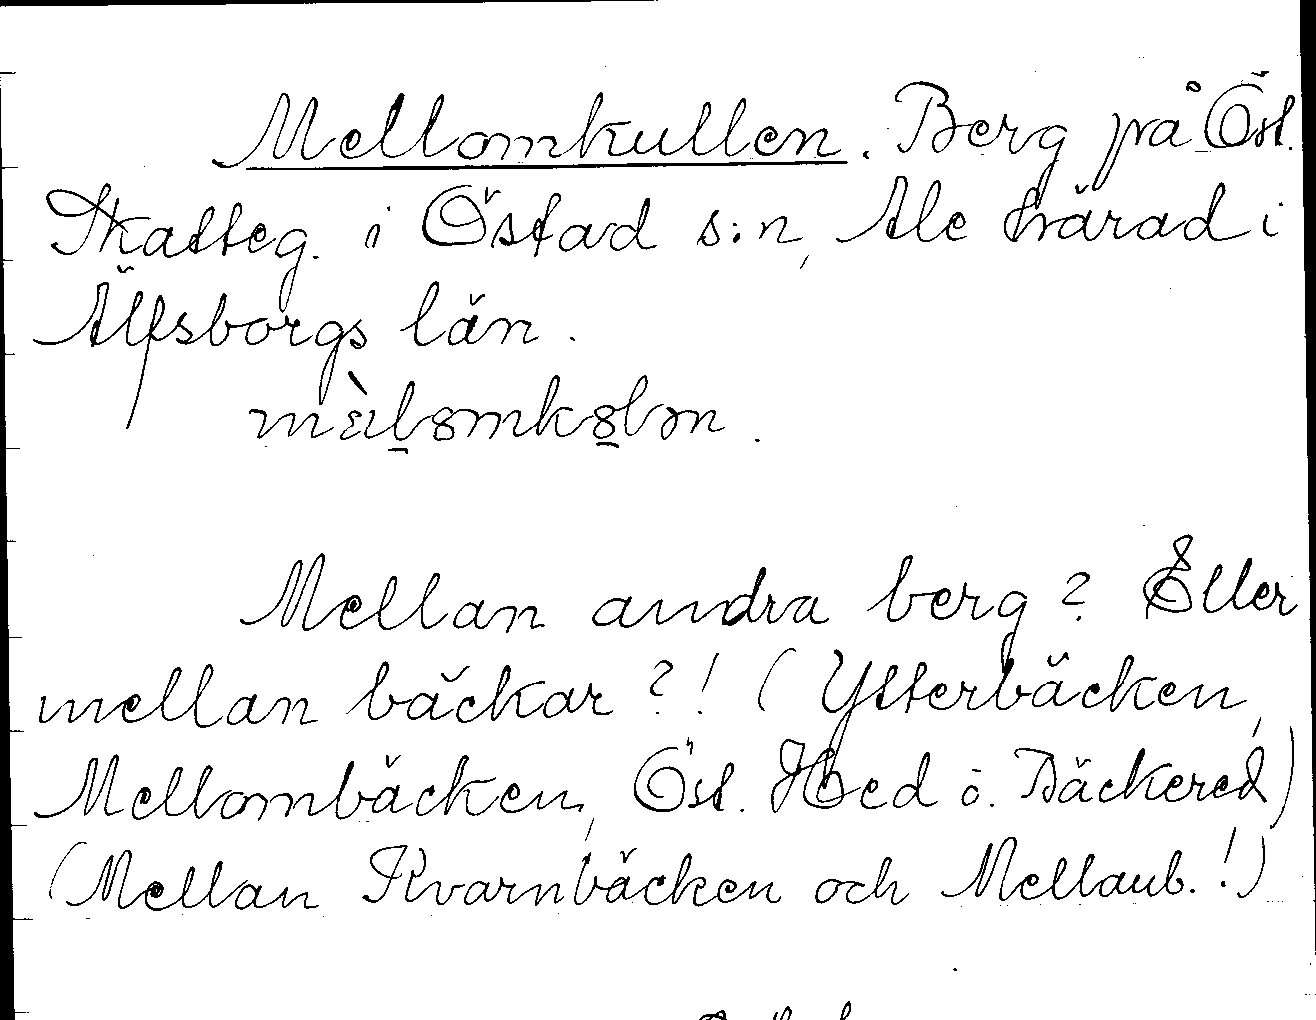 Mellomkullen. Berg på Öst.
Skatteg. i Östad s:n, Ale härad i
Älfsborgs län.
Mellan andra berg? Eller
mellan bäckar?! (Ytterbäcken,
Mellombäcken, Öst. Hed o. Bäckered)
(Mellan Kvarnbäcken och Mellanb.!)